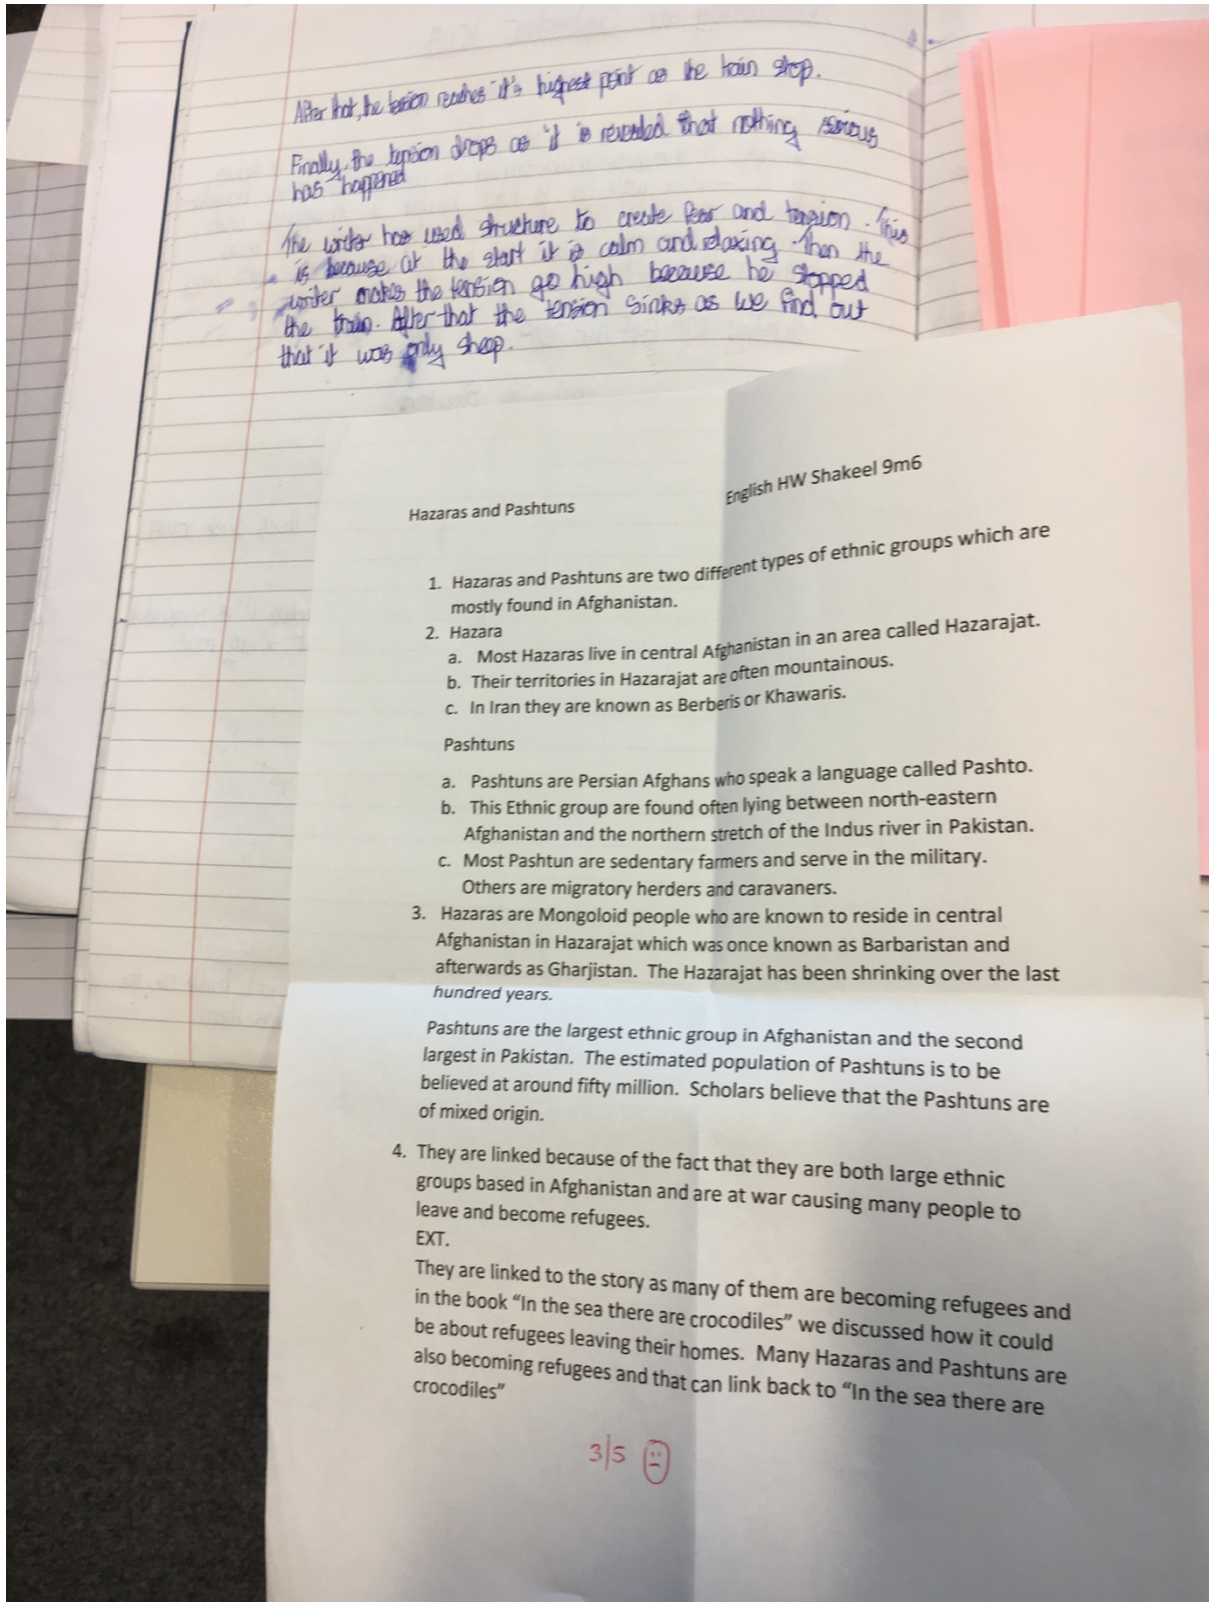 After that, the tension reaches it's highest point as the train stop.
Finally, the tension drops as it is revealed that nothing serious
has happened
The writer has used structure to create fear and tension. This
is because at the start it is calm and relaxing. Then the
writer makes the tension go high because he stopped
the train. After that the tension sinks as we find out
that it was only sheep.
English HW Shakeel 9m6
Hazaras and Pashtuns
1. Hazaras and Pashtuns are two different types of ethnic groups which are
mostly found in Afghanistan.
2. Hazara
a. Most Hazaras live in central Afghanistan in an area called Hazarajat.
b. Their territories in Hazarajat are often mountainous.
c. In Iran they are known as Berberis or Khawaris.
Pashtuns
a. Pashtuns are Persian Afghans who speak a language called Pashto.
b. This Ethnic group are found often lying between north-eastern
Afghanistan and the northern stretch of the Indus river in Pakistan.
c. Most Pashtun are sedentary farmers and serve in the military.
Others are migratory herders and caravaners.
3. Hazaras are Mongoloid people who are known to reside in central
Afghanistan in Hazarajat which was once known as Barbaristan and
afterwards as Gharjistan. The Hazarajat has been shrinking over the last
hundred years.
Pashtuns are the largest ethnic group in Afghanistan and the second
largest in Pakistan. The estimated population of Pashtuns is to be
believed at around fifty million. Scholars believe that the Pashtuns are
of mixed origin.
4. They are linked because of the fact that they are both large ethnic
groups based in Afghanistan and are at war causing many people to
leave and become refugees.
EXT.
They are linked to the story as many of them are becoming refugees and
in the book “In the sea there are crocodiles” we discussed how it could
be about refugees leaving their homes. Many Hazaras and Pashtuns are
also becoming refugees and that can link back to “In the sea there are
crocodiles”
3/5